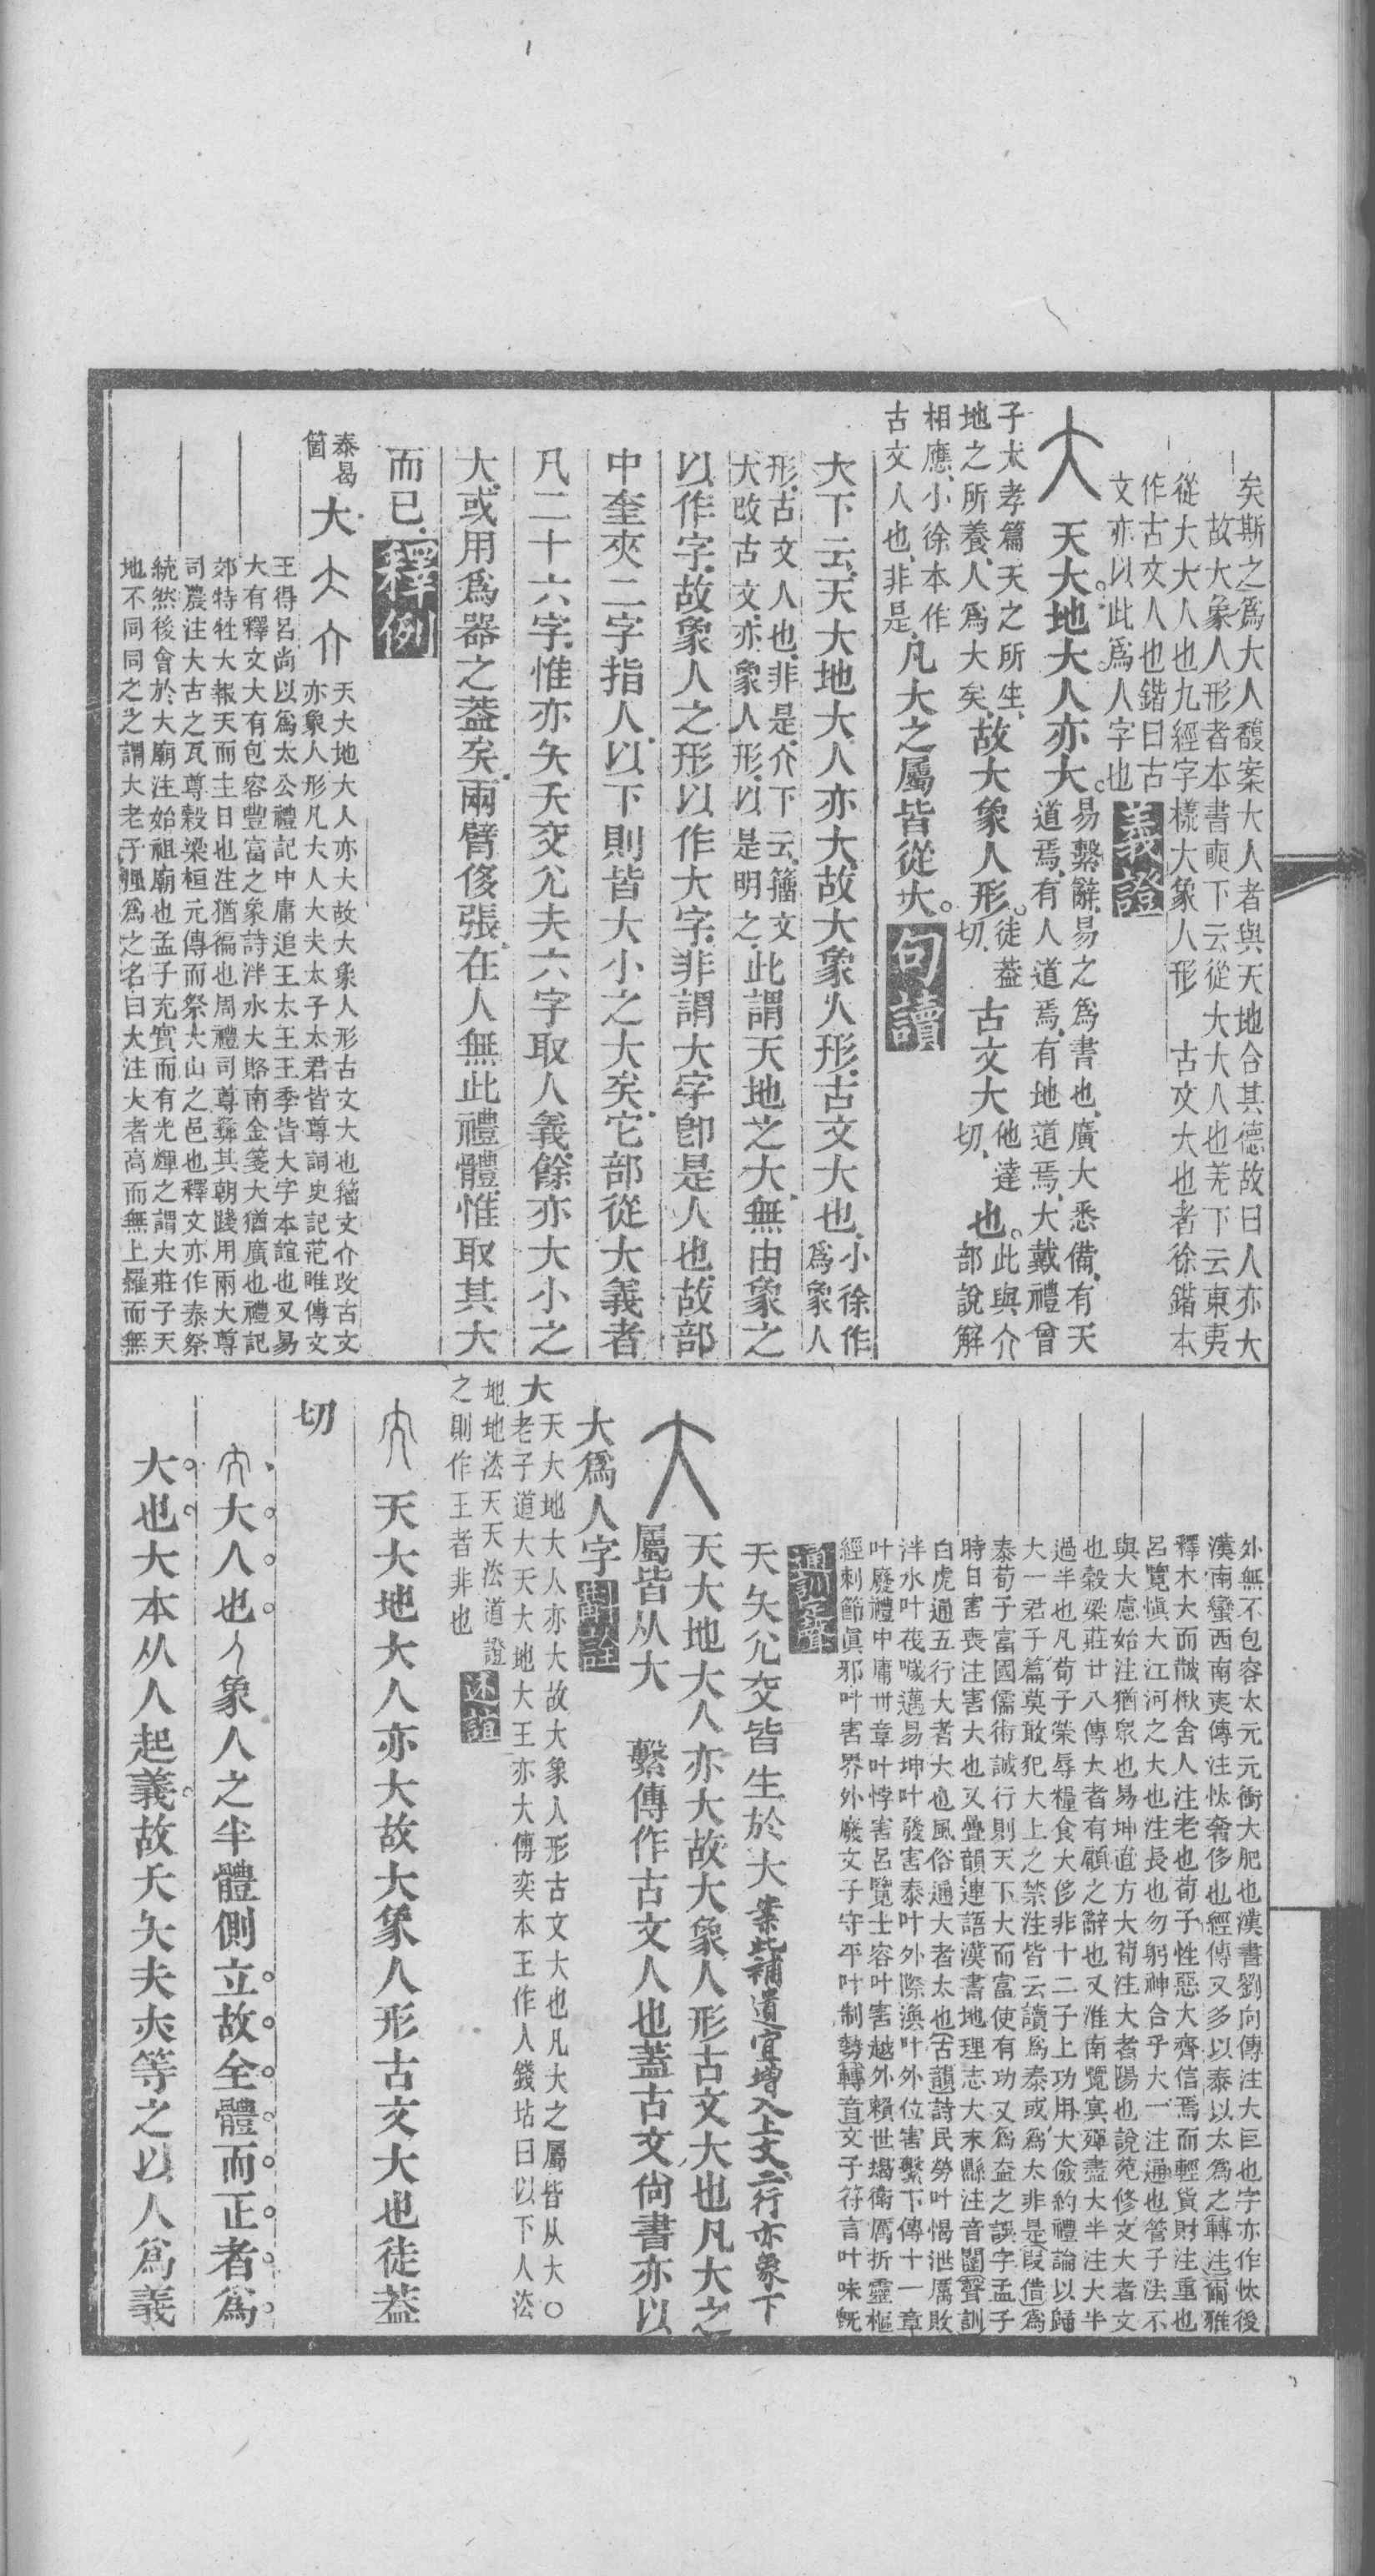 矣斯之爲大人馥案大人者與天地合其德故曰人亦大
故大象人形者本書奭下云從大大人也羌下云東夷
從大大人也九經字㨾大象人形 古文大也者徐鍇本
作古文人也鍇曰古
文亦以此爲人字也 義證
大 天大地大人亦大。易繫辭、易之爲書也、廣大悉備、有天
道焉、有人道焉、有地道焉、大戴禮曾
子大孝篇天之所生、
地之所養、人爲大矣、故大象人形。徒蓋切、古文大、他達切、也。此與介
部說解
相應、小徐本作
古文人也、非是、凡大之屬皆從大。句讀
大下云、天大地大人亦大、故大象人形、古文大也、小徐作
爲象人
形、古文人也、非是、介下云、籒文
大改古文、亦象人形、以是明之、此謂天地之大、無由象之
以作字、故象人之形以作大字、非謂大字卽是人也、故部
中奎夾二字指人、以下則皆大小之大矣、它部從大義者
凡二十六字、惟亦夨夭交尣夫六字取人義、餘亦大小之
大、或用爲器之葢矣、兩臂侈張、在人無此禮體、惟取其大
而已、釋例
泰曷
箇 大 大 介 天大地大人亦大故大象人形古文大也籒文介改古文
亦象人形凡大人大夫太子太君皆尊詞史記范雎傳文
王得呂尚以爲太公禮記中庸追王太王王季皆大字本誼也又易
大有釋文大有包容豐富之象詩泮水大賂南金箋大猶廣也禮記
郊特牲大報天而主日也注猶徧也周禮司尊彝其朝踐用兩大尊
司農注大古之瓦尊穀梁桓元傳而祭大山之邑也釋文亦作泰祭
統然後會於大廟注始祖廟也孟子充實而有光輝之謂大莊子天
地不同同之之謂大老子強爲之名曰大注大者高而無上羅而無
外無不包容太元元衝大肥也漢書劉向傳注大巨也字亦作忕後
漢南蠻西南夷傳注忕奢侈也經傳又多以泰以太爲之轉注爾雅
釋木大而皵楸舍人注老也荀子性惡大齊信焉而輕貨財注重也
呂覽愼大江河之大也注長也勿躬神合乎大一注通也管子法不
與大慮始注猶衆也易坤直方大荀注大者陽也說苑修文大者文
也穀梁莊廿八傳大者有顧之辭也又淮南覽冥殫盡大半注大半
過半也凡荀子榮辱糧食大侈非十二子上功用大儉約禮論以歸
大一君子篇莫敢犯大上之禁注皆云讀爲泰或爲太非是假借爲
泰荀子富國儒術誠行則天下大而富使有功又爲㿽之誤字孟子
時日害喪注害大也又疊韻連語漢書地理志大末縣注音闥聲訓
白虎通五行大者大也風俗通大者太也古韻詩民勞叶愒泄厲敗
泮水叶茷噦邁易坤叶發害泰叶外際渙叶外位害繫下傳十一章
叶廢禮中庸卅章叶悖害呂覽士容叶害越外賴世堨衛厲折靈樞
經刺節眞邪叶害界外廢文子守平叶制勢轉音文子符言叶味旣
通訓定聲
天夨尣交皆生於大 案此補遺宜增入上文二行亦象下
大 天大地大人亦大故大象人形古文大也凡大之
屬皆从大 繫傳作古文人也蓋古文尙書亦以
大爲人字 斠詮
大 天大地大人亦大故大象人形古文大也凡大之屬皆从大〇
老子道大天大地大王亦大傅奕本王作人錢坫曰以下人法
地地法天天法道證
之則作王者非也 述誼
大 天大地大人亦大故大象人形古文大也徒蓋
切
大大人也人象人之半體側立故全體而正者爲
大也大本从人起義故夭夨夫夾等之以人爲義